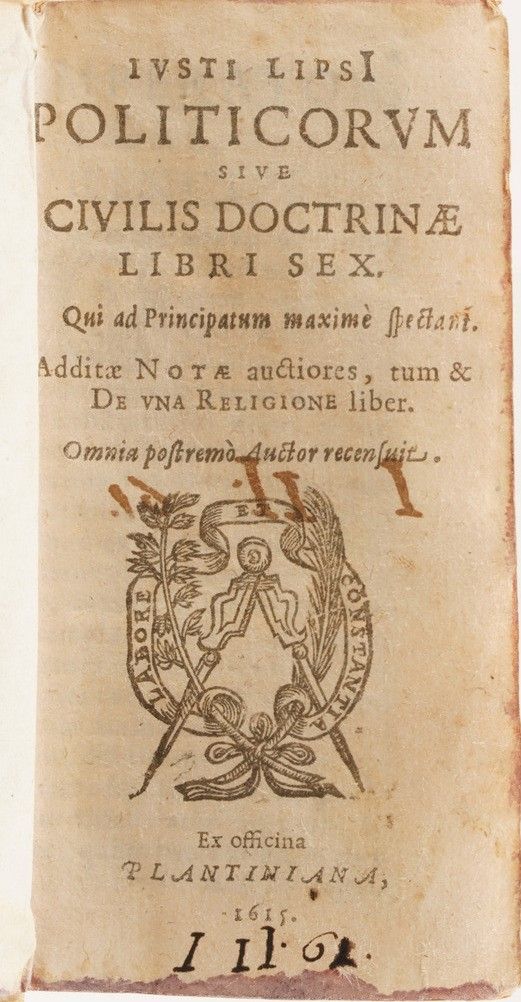 IVSTI LIPSI
POLITICORVM
SIVE
CIVILIS DOCTRINÆ
LIBRI SEX.
Qui ad Principatum maximè ſpectant.
Additæ NOTÆ auctiores, tum &
DE VNA RELIGIONE liber.
Omnia poſtremò Auctor recenſuit.
II. I
ET
LABORE
CONSTANTIA
Ex officina
PLANTINIANA,
1615.
I II. 61.